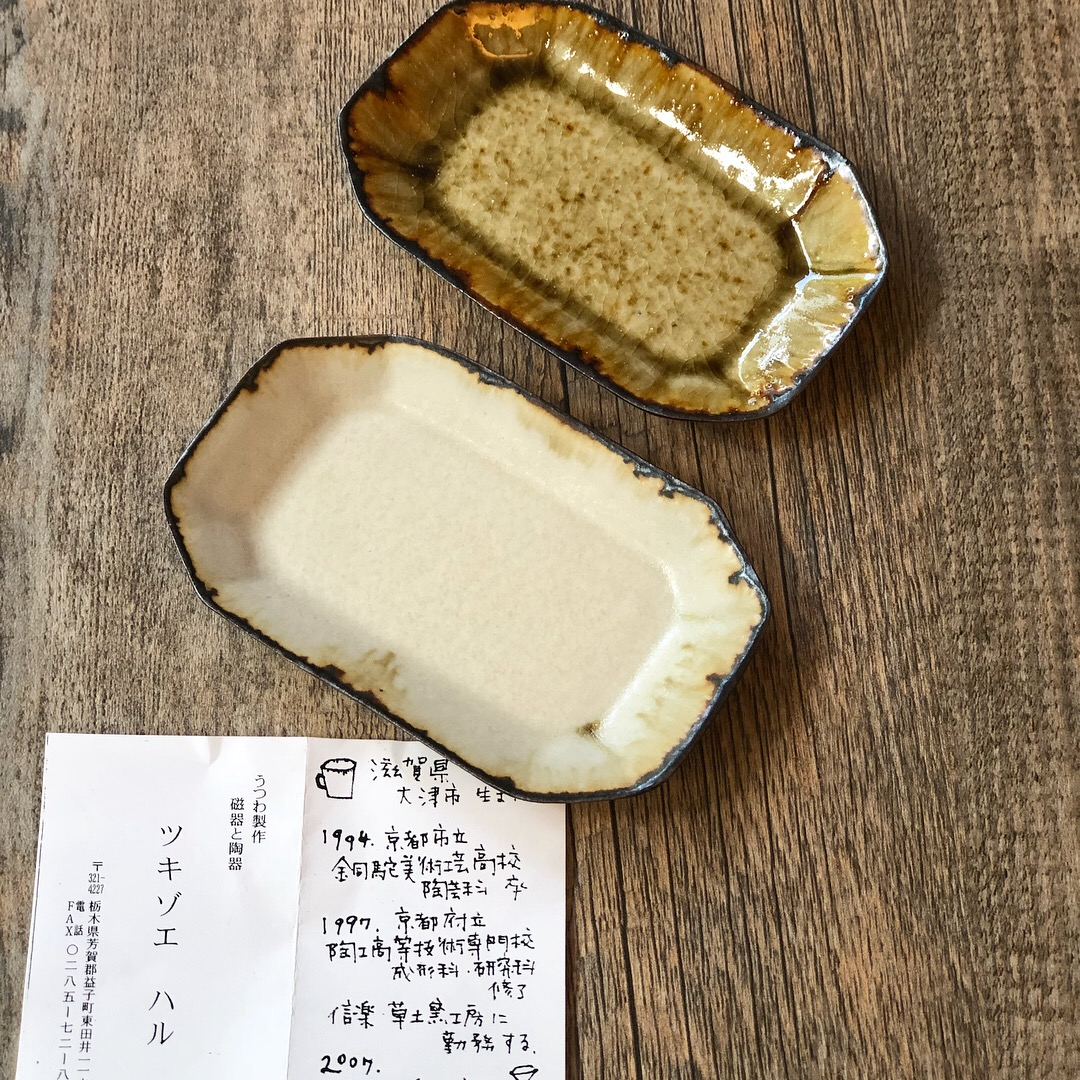 うつわ製作
磁器と陶器
ツキゾエ ハル
〒321-4227 栃木県芳賀郡益子町東田井一一
電話
FAX 〇二八五ー七二ー八
滋賀県
大津市 生ま
1994. 京都市立
銅駝美術工芸高校
陶芸科 卒
1997. 京都府立
陶工高等技術専門校
成形科・研究科
修了
信楽 草土窯工房に
勤務する.
2007.